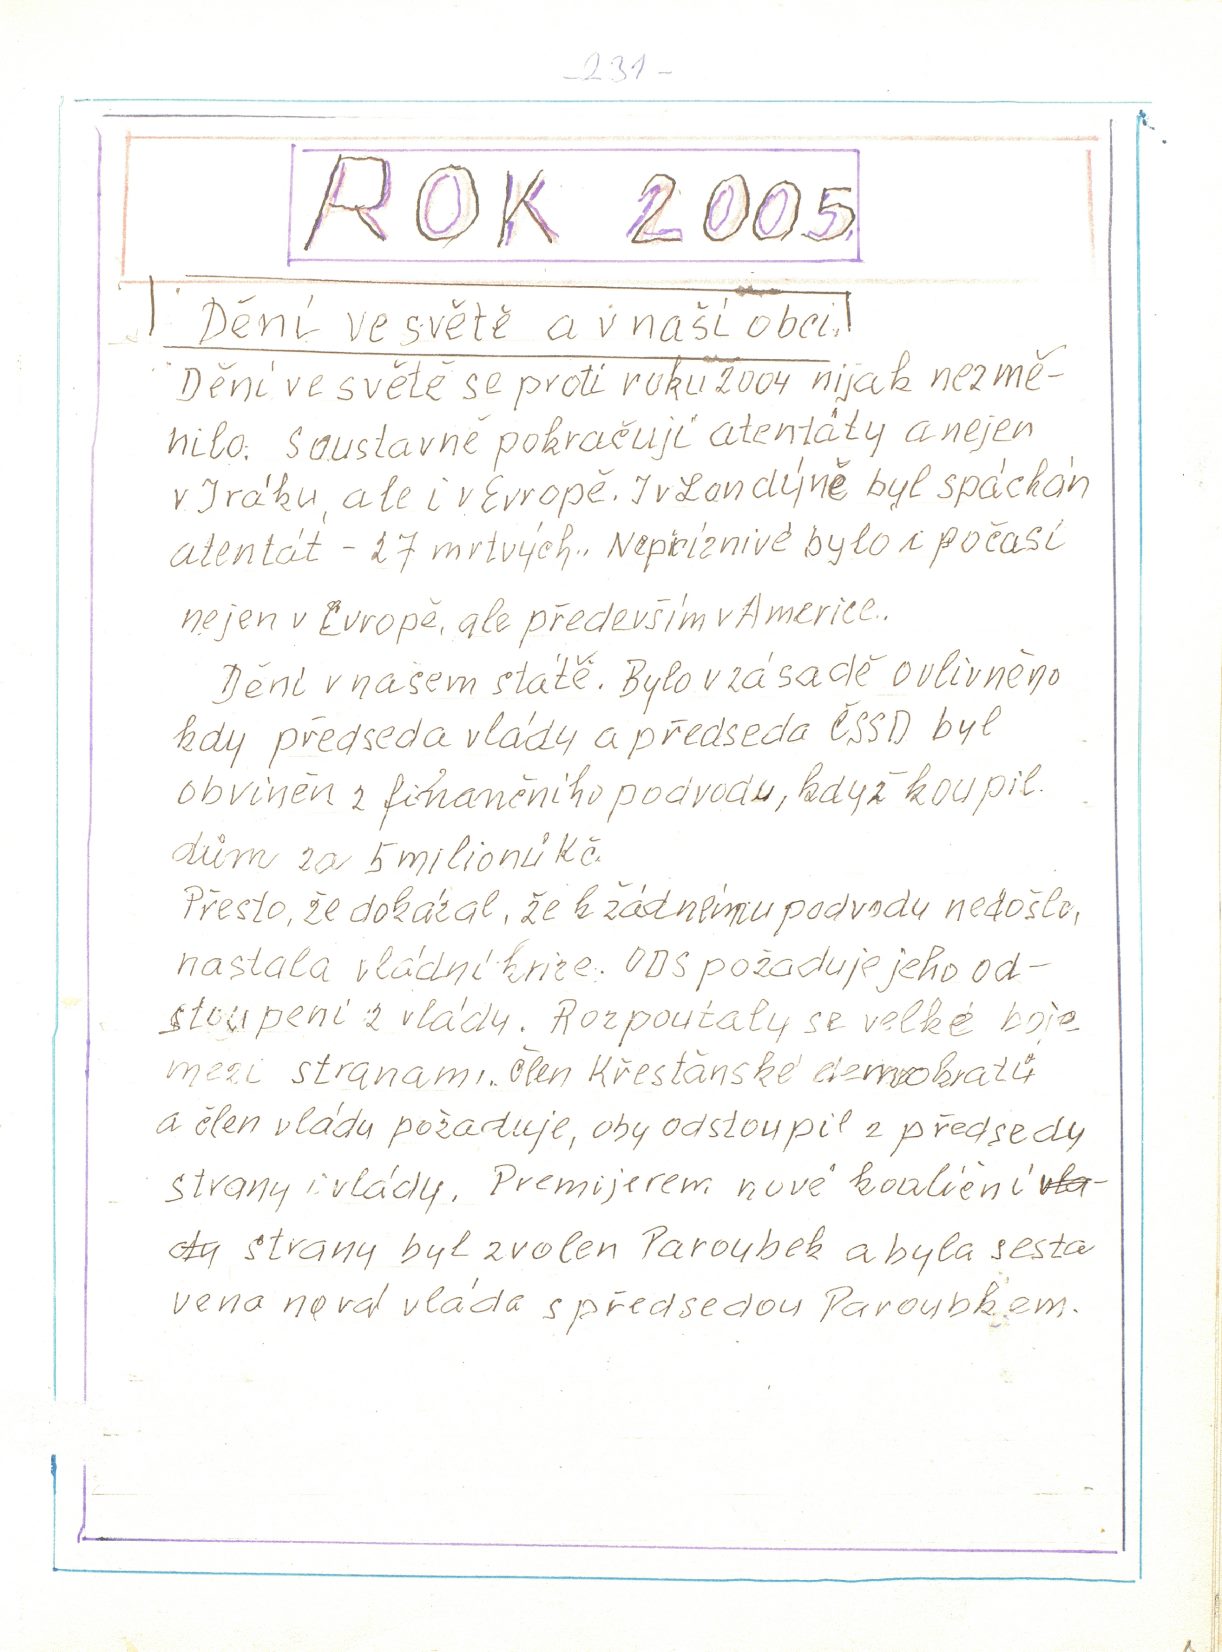 -231-
ROK 2005.
Dění ve světě a v naší obci.
Dění ve světě se proti roku 2004 nijak nezmě-
nilo. Soustavně pokračují atentáty a nejen
v Iráku, ale i v Evropě. I v Londýně byl spáchán
atentát - 27 mrtvých.. Nepříznivé bylo i počasí
nejen v Evropě, ale především v Americe..
Dění v našem státě. Bylo v zásadě ovlivněno
kdy předseda vlády a předseda ČSSD byl
obviněn z finančního podvodu, když koupil
dům za 5 milionů Kč.
Přesto, že dokázal, že k žádnému podvodu nedošlo,
nastala vládní krize. ODS požaduje jeho od-
stoupení z vlády. Rozpoutaly se velké boje
mezi stranami. Člen Křesťánské demokratů
a člen vládu požaduje, aby odstoupil z předsedy
strany i vlády. Premijerem nové koaliční vlá-
dy strany byl zvolen Paroubek a byla sesta
vena nová vláda s předsedou Paroubkem.